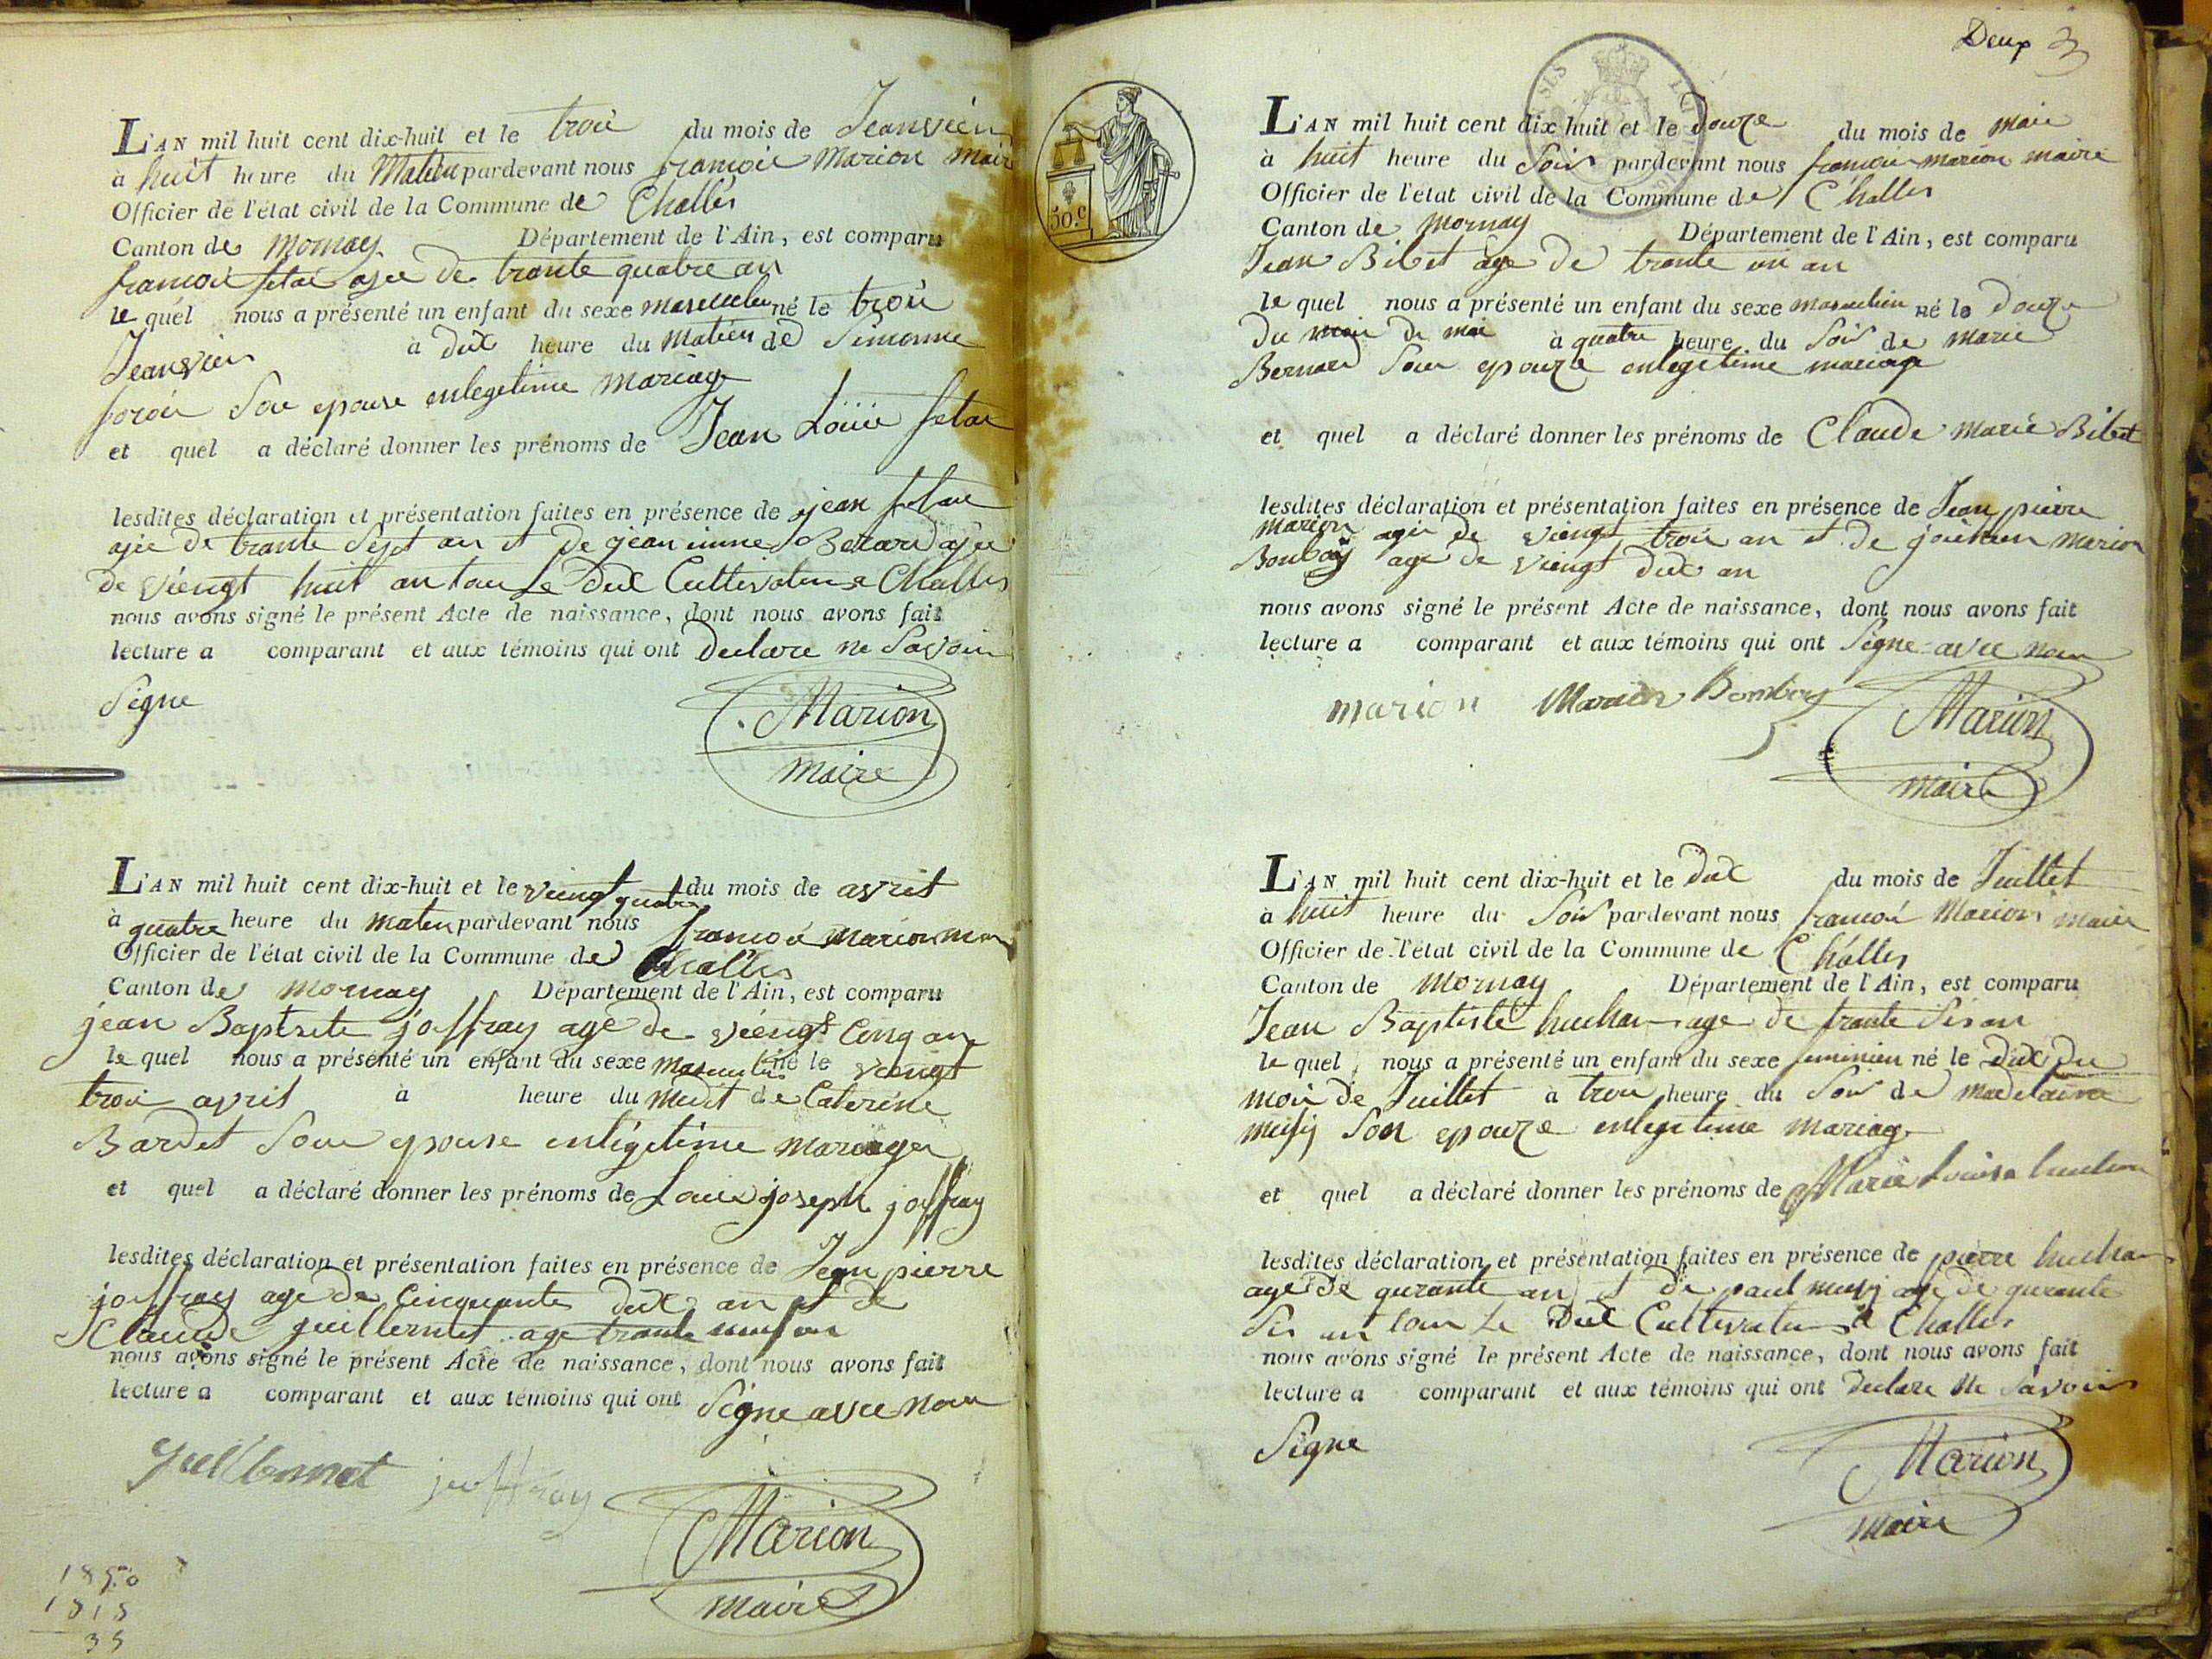 L'AN mil huit cent dix-huit et le troi du mois de Jeanvien
à huit heure du Matien pardevant nous francoie Marion Mair
Officier de l'état civil de la Commune de Challes
Canton de Mornay Département de l'Ain, est comparu
francoi fetar agee de trante quatre an
le quel nous a présenté un enfant du sexe masculin né le troi
Jeanvien à dix heure du Matien de Simonne
son epouse enlegetime mariage
et quel a déclaré donner les prénoms de Jean Louie fetar
lesdites déclaration et présentation faites en présence de jean fetar
agee de trante Sept an et de jean Berard agee
de viengt huit an tou Le dux Cultivateur a Challes
nous avons signé le présent Acte de naissance, dont nous avons fait
lecture a comparant et aux témoins qui ont declare ne Savoir
Signe
Marion
Maire
L'AN mil huit cent dix-huit et le viengt quatre du mois de avril
à quatre heure du maten pardevant nous francoi Marion
Officier de l'état civil de la Commune de Challes
Canton de Mornay Département de l'Ain, est comparu
jean Baptiste joffray age de viengt Cinq an
le quel nous a présenté un enfant du sexe masculin né le viengt
troi avril à heure du medit de Caterine
Bardet Sou epouse enlegetime mariage
et quel a déclaré donner les prénoms de Louis joseph joffray
lesdites déclaration et présentation faites en présence de Jean pierre
joffray age de Cinquante dux an et de
Claude guillermet age trante neuf an
nous avons signé le présent Acte de naissance, dont nous avons fait
lecture a comparant et aux témoins qui ont Signe avec nou
joffray
Marion
Maire
1850
1815
35
Deux 3
50.c
L'AN mil huit cent dix-huit et le douze du mois de mai
à huit heure du Soir pardevant nous francoi marion maire
Officier de l'état civil de la Commune de Challes
Canton de Mornay Département de l'Ain, est comparu
Jean Bibet age de trante un an
le quel nous a présenté un enfant du sexe masculien né le douze
du moi de mai à quatre heure du Soir de marie
Bernard Son epouze enlegetime mariage
et quel a déclaré donner les prénoms de Claude Marie Bibet
lesdites déclaration et présentation faites en présence de Jean pierre
marion agee de viengt troi an et de marion
Bonboy age de viengt dux an
nous avons signé le présent Acte de naissance, dont nous avons fait
lecture a comparant et aux témoins qui ont Signe avec nou
marion Marion Bonboy
Marion
Maire
L'AN mil huit cent dix-huit et le dix du mois de Juillet
à huit heure du Soir pardevant nous francoi Marion maire
Officier de l'état civil de la Commune de Challes
Canton de Mornay Département de l'Ain, est comparu
Jean Baptiste age de trante Sis an
le quel nous a présenté un enfant du sexe feminien né le dix du
moi de Juillet à troi heure du Soir de madelaine
Son epouze enlegetime mariage
et quel a déclaré donner les prénoms de Marie Louise
lesdites déclaration et présentation faites en présence de pierre
age de qurante an et de paul age de qurante
Sis an tou Le dux Cultivateur a Challes
nous avons signé le présent Acte de naissance, dont nous avons fait
lecture a comparant et aux témoins qui ont declare ne Savoir
Signe
Marion
Maire